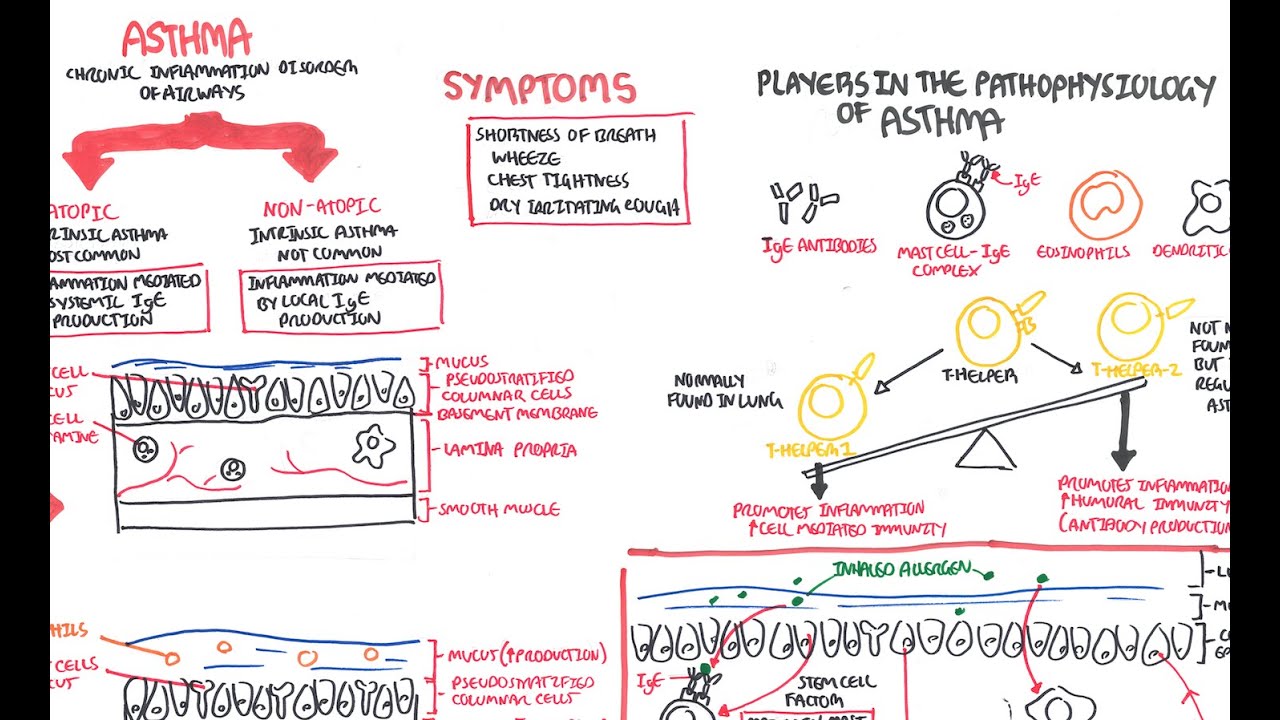 ASTHMA
CHRONIC INFLAMMATION DISORDER
OF AIRWAYS
ATOPIC
RINSIC ASTHMA
OST COMMON
AMMATION MEDIATED
SYSTEMIC IgE
PRODUCTION
NON-ATOPIC
INTRINSIC ASTHMA
NOT COMMON
INFLAMMATION MEDIATED
BY LOCAL IgE
PRODUCTION
CELL
CUS
CELL
TAMINE
MUCUS
PSEUDOSTRATIFIED
COLUMNAR CELLS
BASEMENT MEMBRANE
LAMINA PROPRIA
SMOOTH MUSCLE
PHILS
CELLS
CUT
MUCUT (↑PRODUCTION)
PSEUDOSTRATIFIED
COLUMNAR CELLS
SYMPTOMS
SHORTNESS OF BREATH
WHEEZE
CHEST TIGHTNESS
DRY IRRITATING COUGH
PLAYERS IN THE PATHOPHYSIOLOGY
OF ASTHMA
IgE ANTIBODIES
IgE
MAST CELL-IgE
COMPLEX
EOSINOPHILS
DENDRITIC
NORMALLY
FOUND IN LUNG
T-HELPER
T-HELPER-2
T-HELPER-1
NOT N
FOUN
BUT
REGU
AST
PROMOTES INFLAMMATION
↑CELL MEDIATED IMMUNITY
PROMOTES INFLAMMATION
↑HUMORAL IMMUNITY
(ANTIBODY PRODUCTION
INHALED ALLERGEN
IgE
STEM CELL
FACTOR